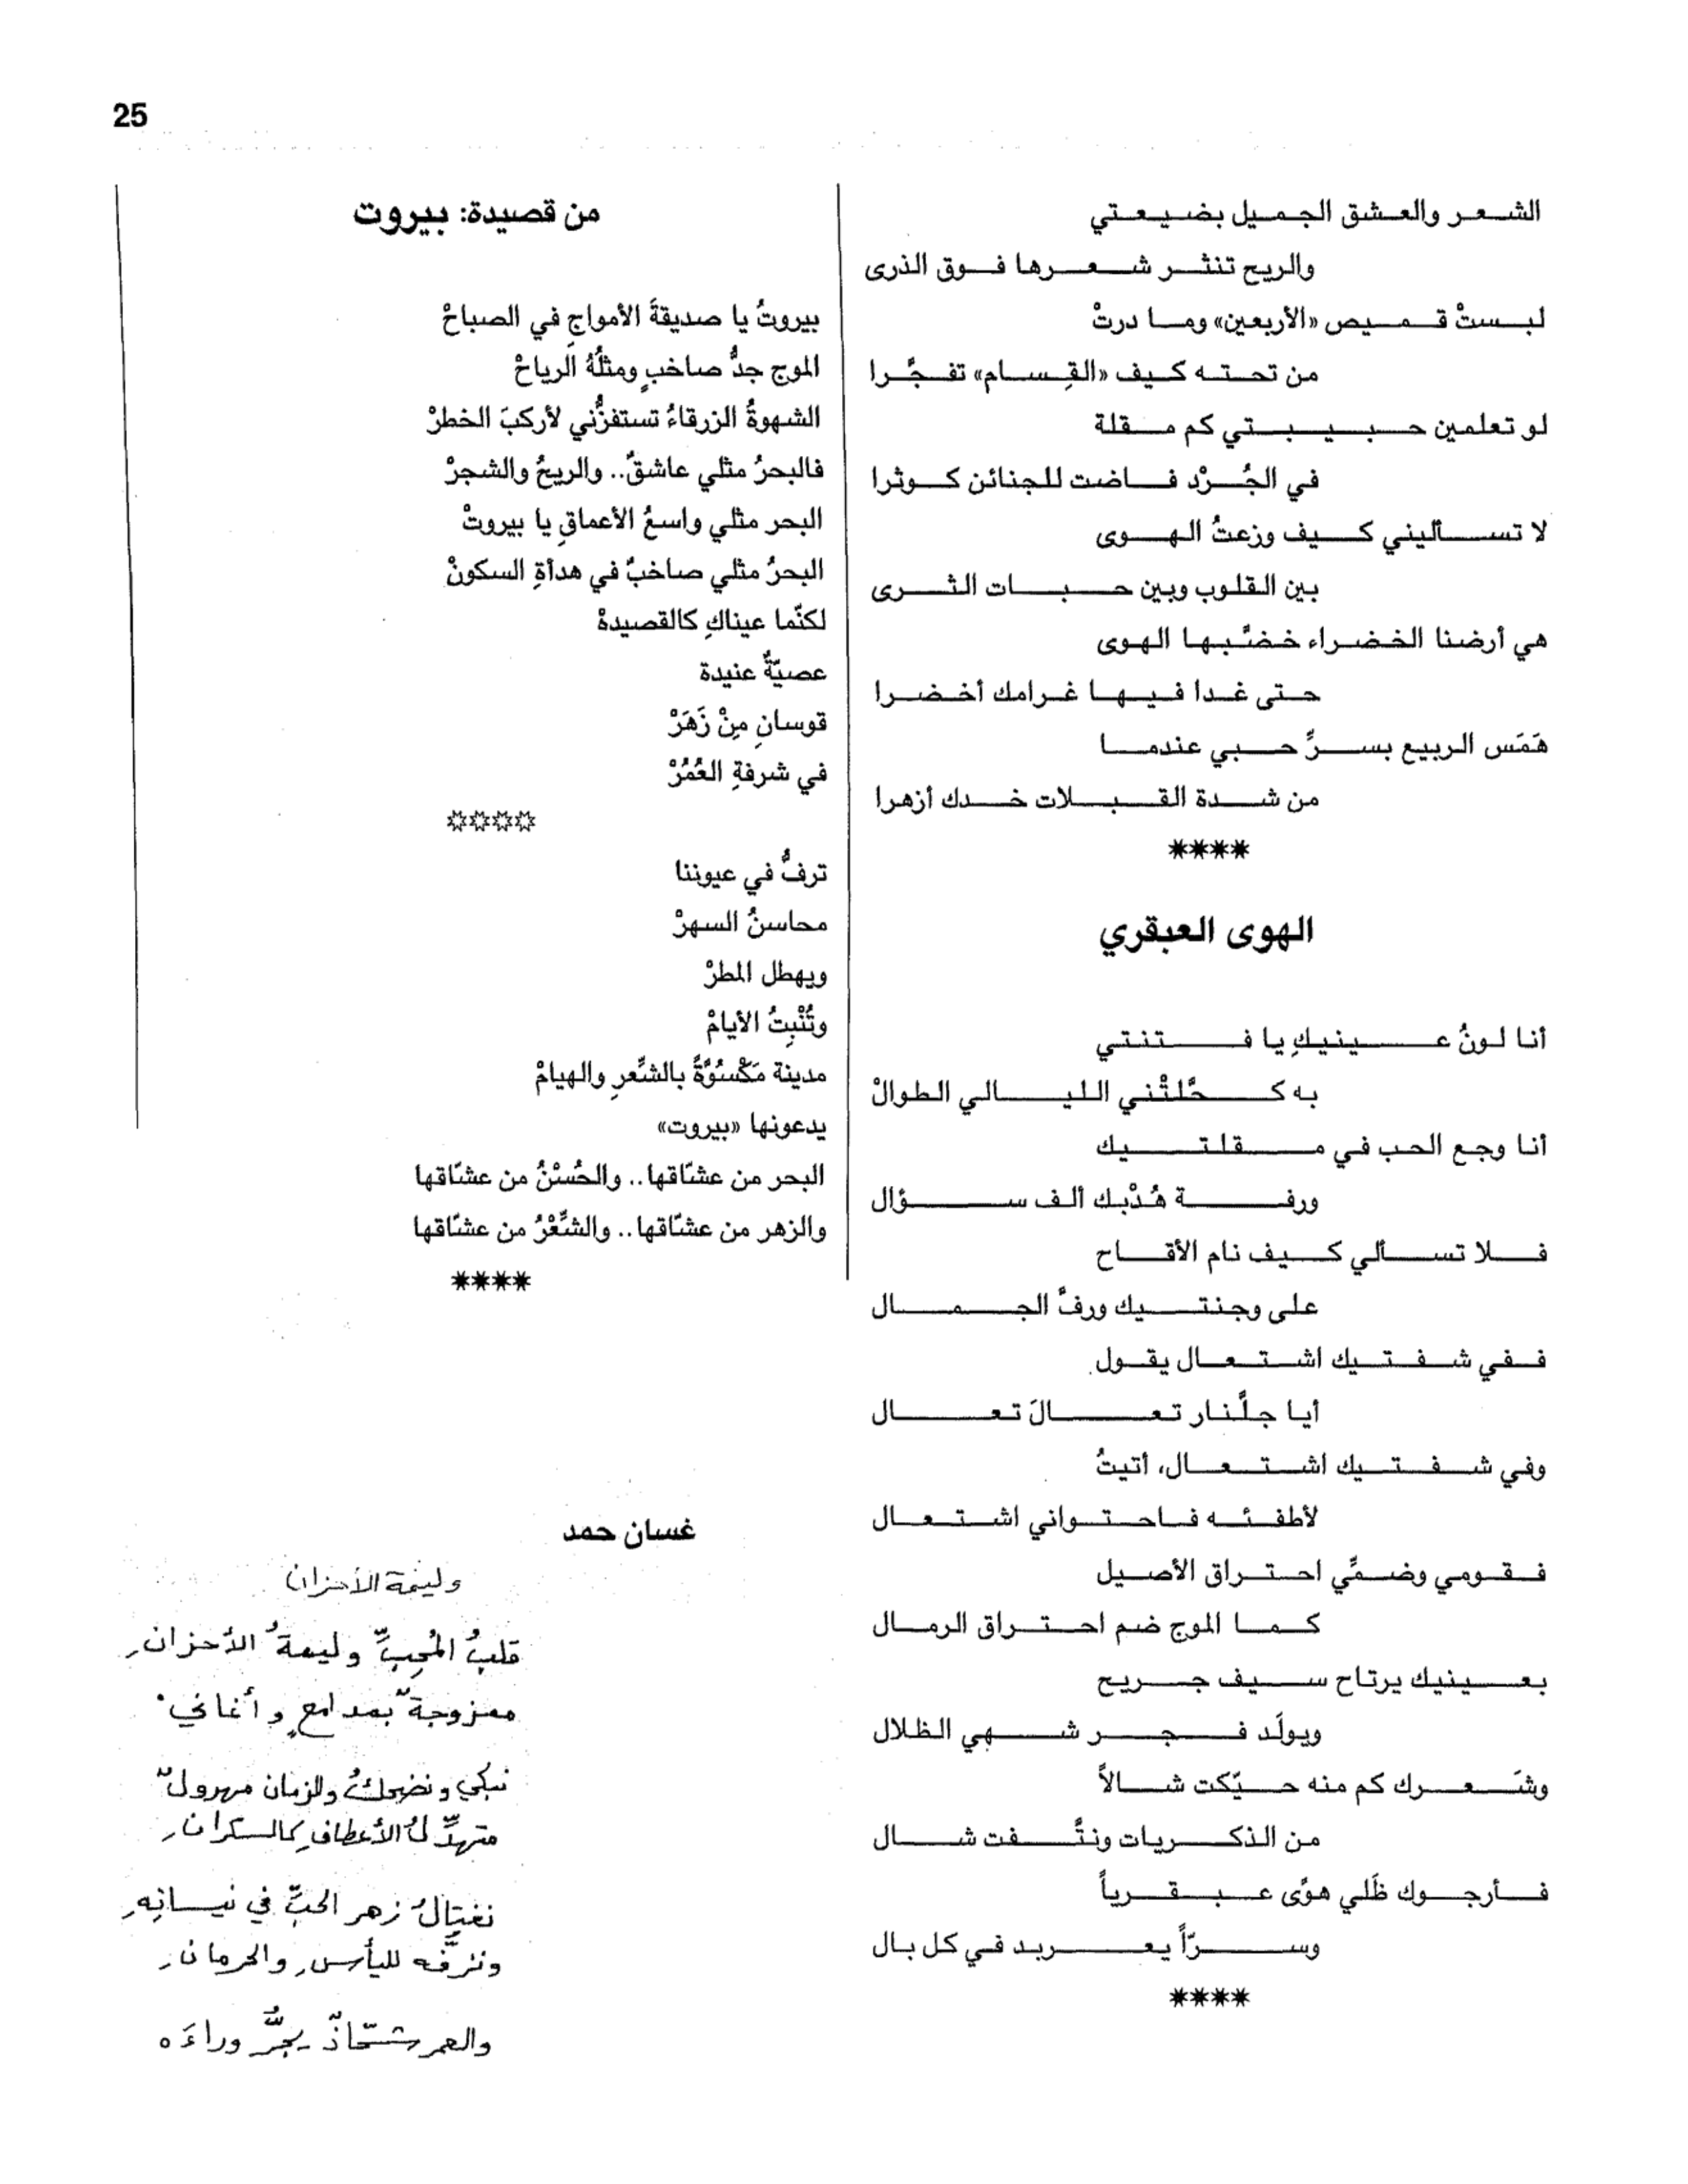 25
الشعر والعشق الجميل بضيعتي
والريح تنثر شعرها فوق الذرى
لبستْ قميص «الأربعين» وما درتْ
من تحته كيف «القِسام» تفجَّرا
لو تعلمين حبيبتي كم مقلة
في الجُرْد فاضت للجنائن كوثرا
لا تسأليني كيف وزعتُ الهوى
بين القلوب وبين حبات الثرى
هي أرضنا الخضراء خضَّبها الهوى
حتى غدا فيها غرامك أخضرا
هَمَس الربيع بسرِّ حبي عندما
من شدة القبلات خدك أزهرا
****
الهوى العبقري
أنا لونُ عينيكِ يا فتنتي
به كحَّلتْني الليالي الطوالْ
أنا وجع الحب في مقلتيك
ورفة هُدْبك ألف سؤال
فلا تسألي كيف نام الأقاح
على وجنتيك ورفَّ الجمال
ففي شفتيك اشتعال يقول
أيا جلَّنار تعالَ تعال
وفي شفتيك اشتعال، أتيتُ
لأطفئه فاحتواني اشتعال
فقومي وضمِّي احتراق الأصيل
كما الموج ضم احتراق الرمال
بعينيك يرتاح سيف جريح
ويولَد فجر شهي الظلال
وشَعرك كم منه حيّكت شالاً
من الذكريات ونتَّفت شال
فأرجوك ظَلي هوًى عبقرياً
وسرّاً يعربد في كل بال
****
من قصيدة: بيروت
بيروتُ يا صديقةَ الأمواجِ في الصباحْ
الموج جدُّ صاخبٍ ومثلُهُ الرياحْ
الشهوةُ الزرقاءُ تستفزُّني لأركبَ الخطرْ
فالبحرُ مثلي عاشقٌ.. والريحُ والشجرْ
البحر مثلي واسعُ الأعماقِ يا بيروتْ
البحرُ مثلي صاخبٌ في هدأةِ السكونْ
لكنّما عيناكِ كالقصيدةْ
عصيّةٌ عنيدة
قوسانِ مِنْ زَهَرْ
في شرفةِ العُمُرْ
****
ترفُّ في عيوننا
محاسنُ السهرْ
ويهطل المطرْ
وتُنْبِتُ الأيامْ
مدينة مَكْسُوَّةً بالشّعرِ والهيامْ
يدعونها «بيروت»
البحر من عشّاقها.. والحُسْنُ من عشّاقها
والزهر من عشّاقها.. والشّعْرُ من عشّاقها
****
غسان حمد
وليمة الأحزان
قلبُ المُحِبِّ وليمةُ الأحزانِ
ممزوجةٌ بمدامعٍ وأغاني
نبكي ونضحكُ والزمان مهرولٌ
متهدِّلُ الأعطافِ كالسكرانِ
نغتالُ زهر الحبِّ في نيسانِهِ
ونزفّه لليأسِ والحرمانِ
والعمر شحّاذٌ يجرُّ وراءَه